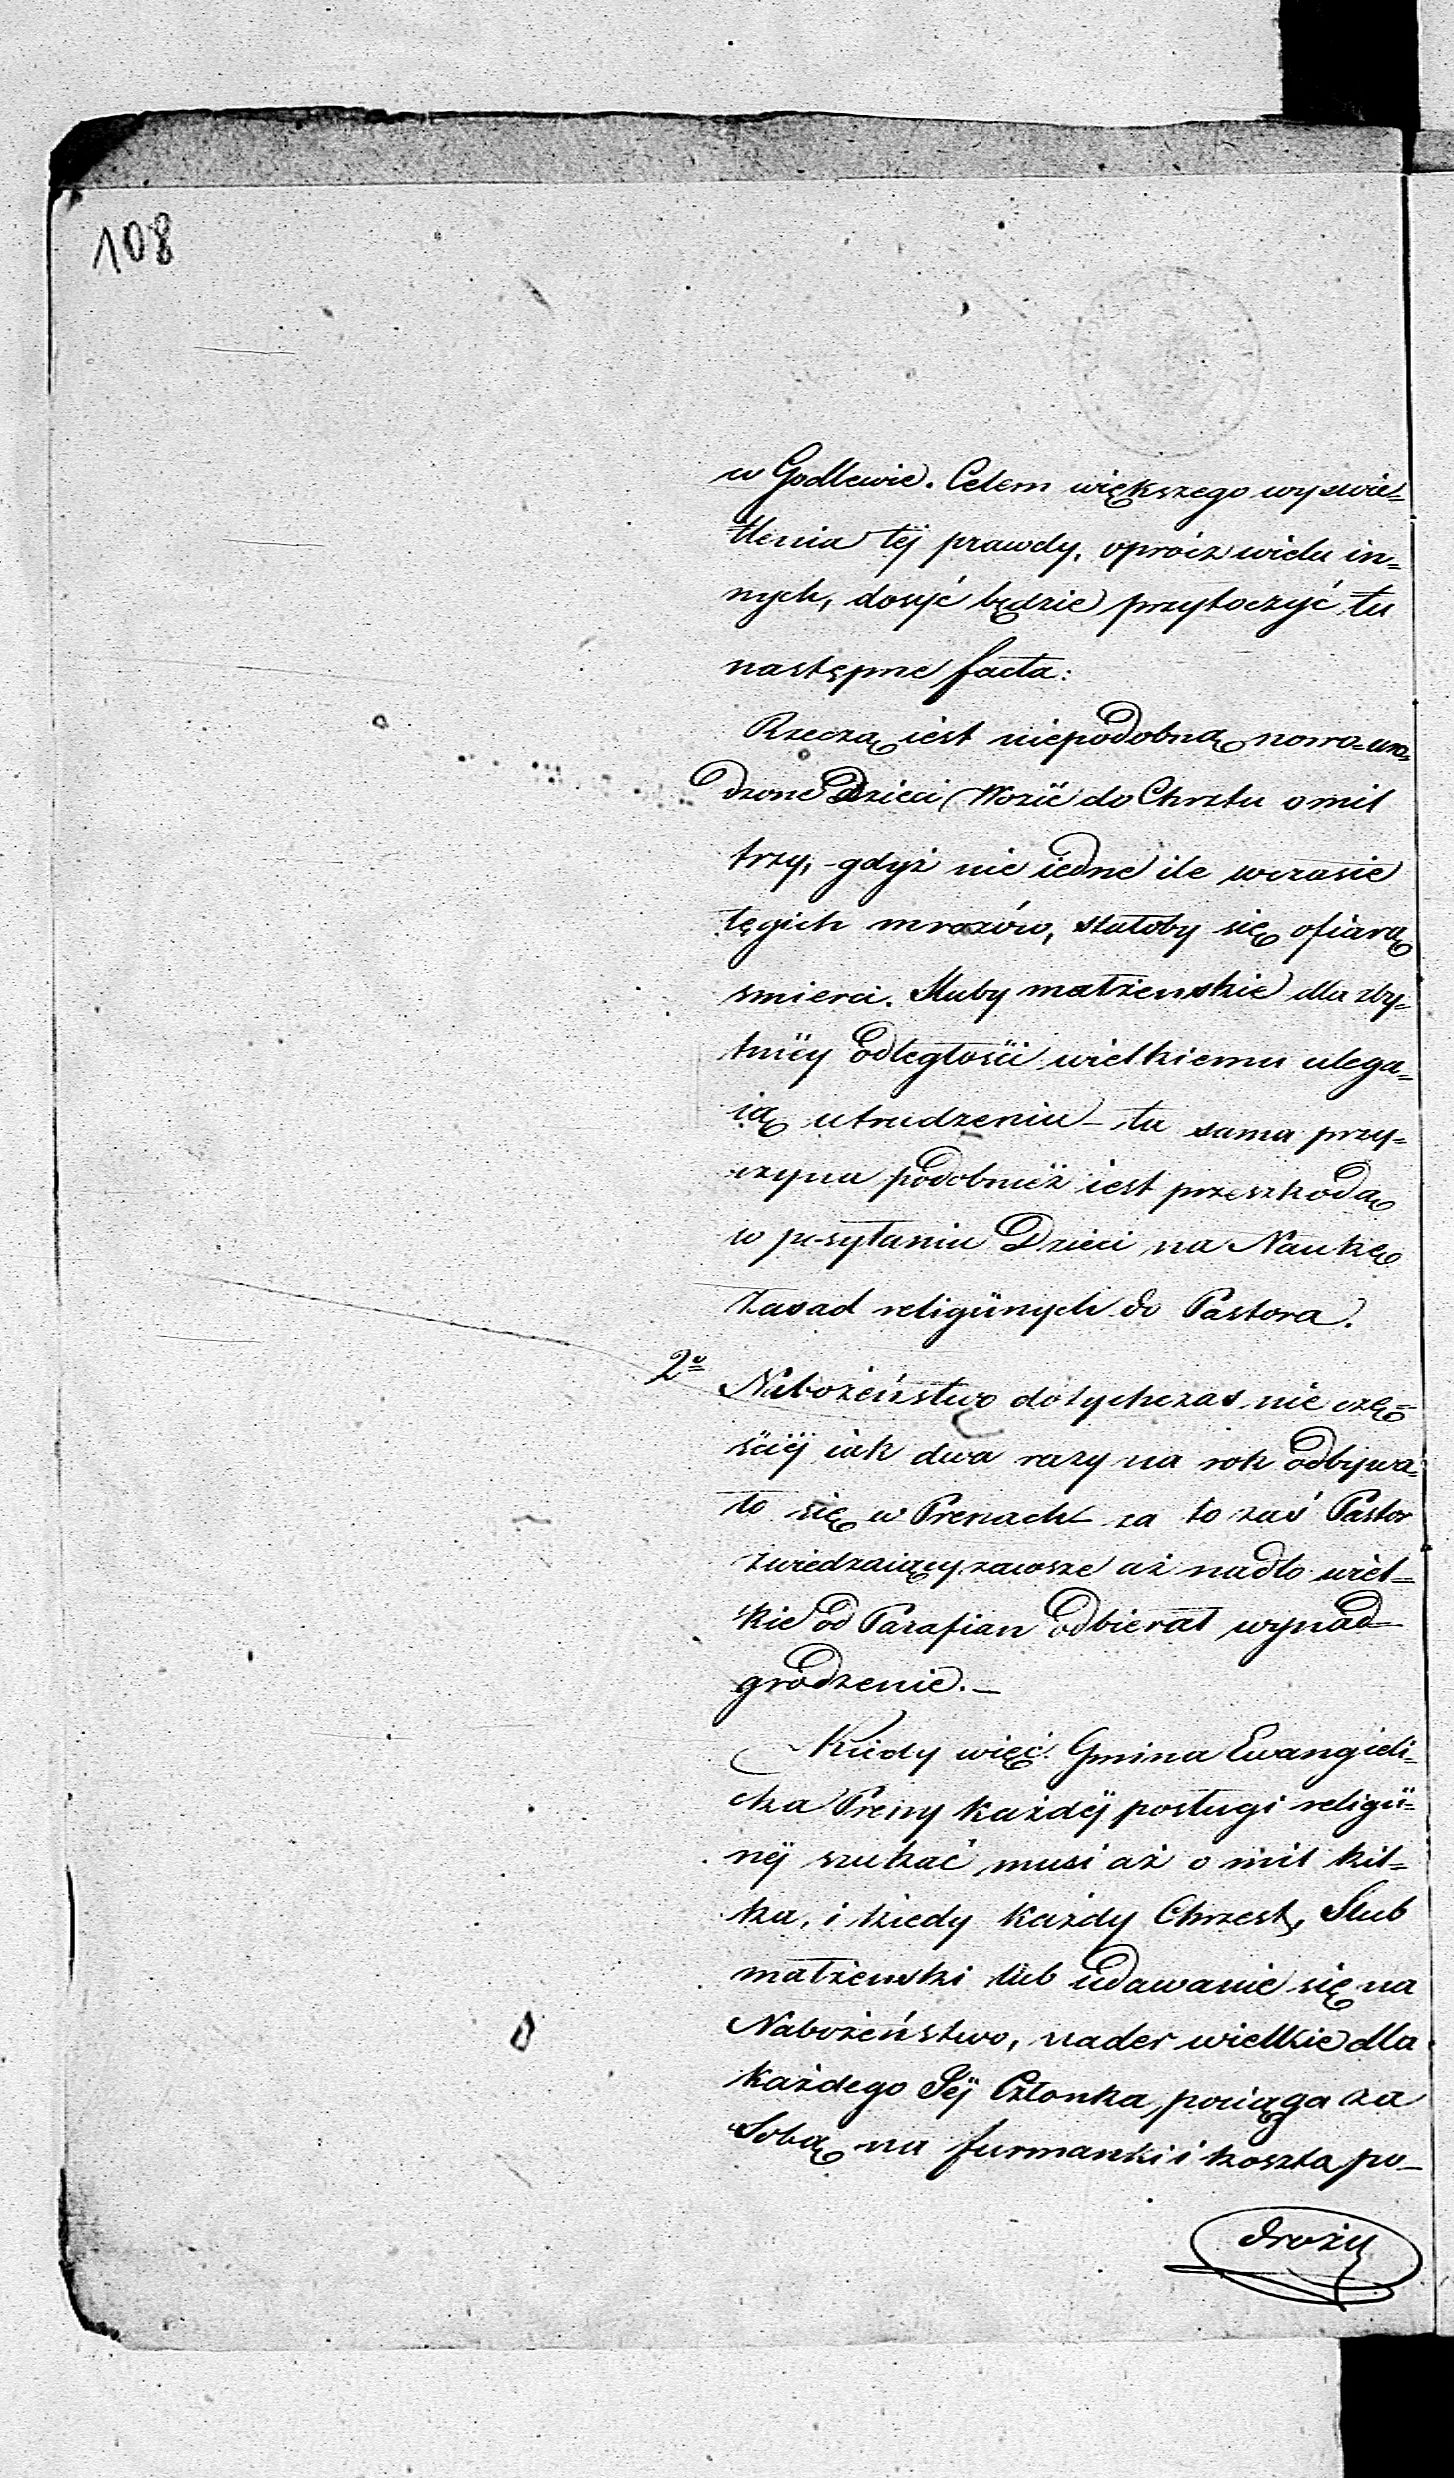 108
w Godlewie. Celem większego wyswie=
tlenia téj prawdy, oprócz wielu in=
nych, dosyć będzie przytoczyć tu
następne facta:
Rzeczą iest niepodobną nowo-uro=
dzone Dzieci Wozić do Chrztu o mil
trzy, - gdyż nie iedne ile wczasie
tęgich mrozów, stałoby się ofiarą
smierci. Sluby małżenskie dla zby=
tnićy odległości wielkiemu ulega=
ią utrudzeniu - ta sama przy=
czyna podobnież iest przeszkodą
w posyłaniu Dzieci na Naukę
Zasad religiinych do Pastora.
2º Nabożeństwo dotychczas nie czę=
ściéj iak dwa razy na rok odbywa=
ło się w Prenach - za to zaś Pastor
zwiedzaiący zawsze aż nadto wiel=
kie od Parafian odbierał wynad
grodzenie. -
Kiedy więc Gmina Ewangieli=
cka Preny każdéj posługi religii=
néj szukać musi aż o mil kil=
ka, i kiedy każdy Chrzest, Slub
małżenski lub udawanie się na
Nabożeństwo, nader wielkie dla
każdego Jéj Członka pociąga za
Sobą na furmanki i koszta po=
droży